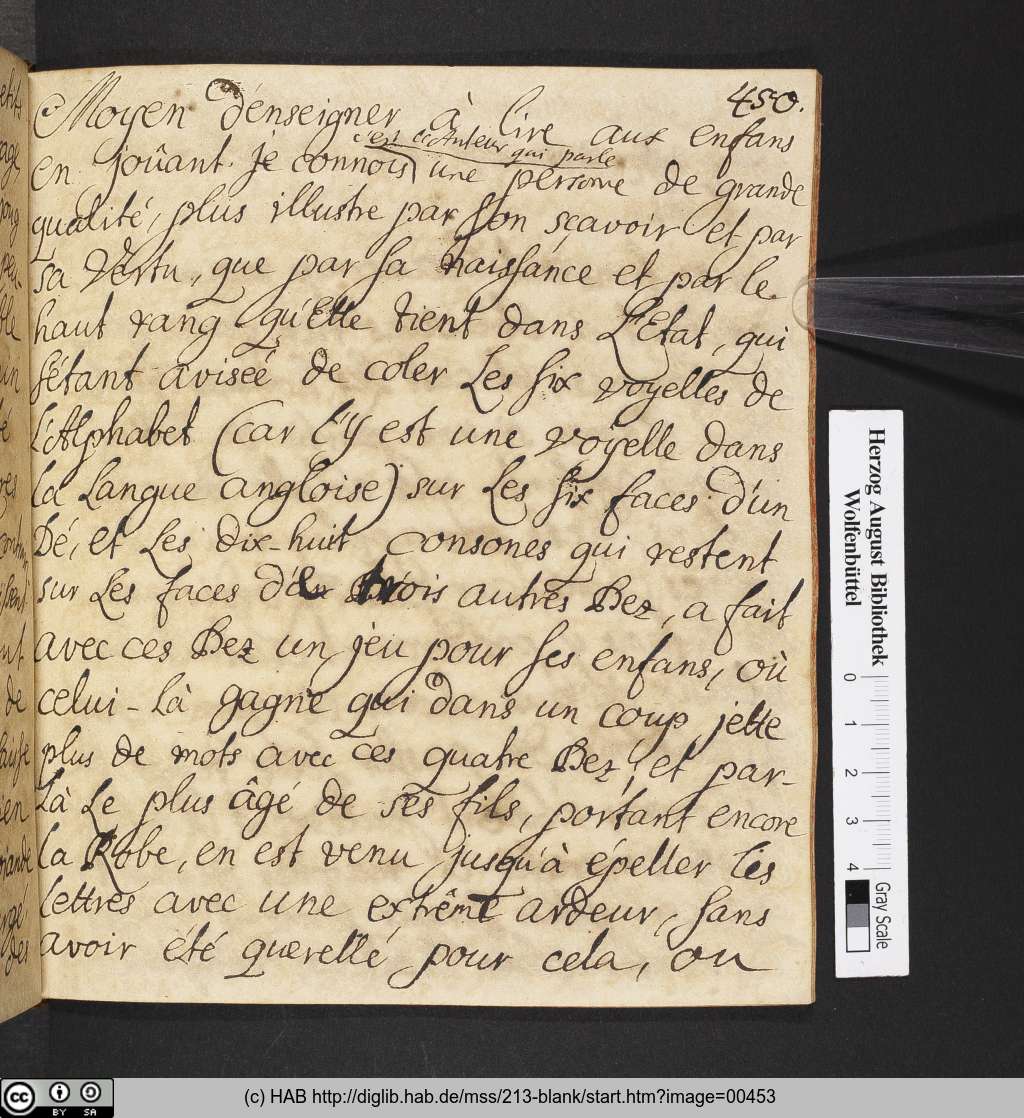 450.
Moyen d'enseigner à lire aux enfans
c'est l'Auteur qui parle
en joûant. je connois une personne de grande
qualité, plus illustre par son sçavoir et par
sa Vertu, que par sa naissance et par le
haut rang qu'Elle tient dans L'Etat, qui
s'étant aviseé de coler Les six voyelles de
L'Alphabet (car l'y est une voyelle dans
la Langue angloise) sur Les six faces d'un
Dé, et Les dix-huit consones qui restent
sur Les faces de trois autres Dez, a fait
avec ces Dez un jeu pour ses enfans, où
celui-là gagne qui dans un coup jette
plus de mots avec ces quatre Dez, et par-
Là Le plus âgé de ses fils, portant encore
la Robe, en est venu jusqu'à épeller les
lettres avec une extrême ardeur, sans
avoir été querellé pour cela, ou
Herzog August Bibliothek
Wolfenbüttel
0 1 2 3 4
Gray Scale
cc BY SA
(c) HAB http://diglib.hab.de/mss/213-blank/start.htm?image=00453